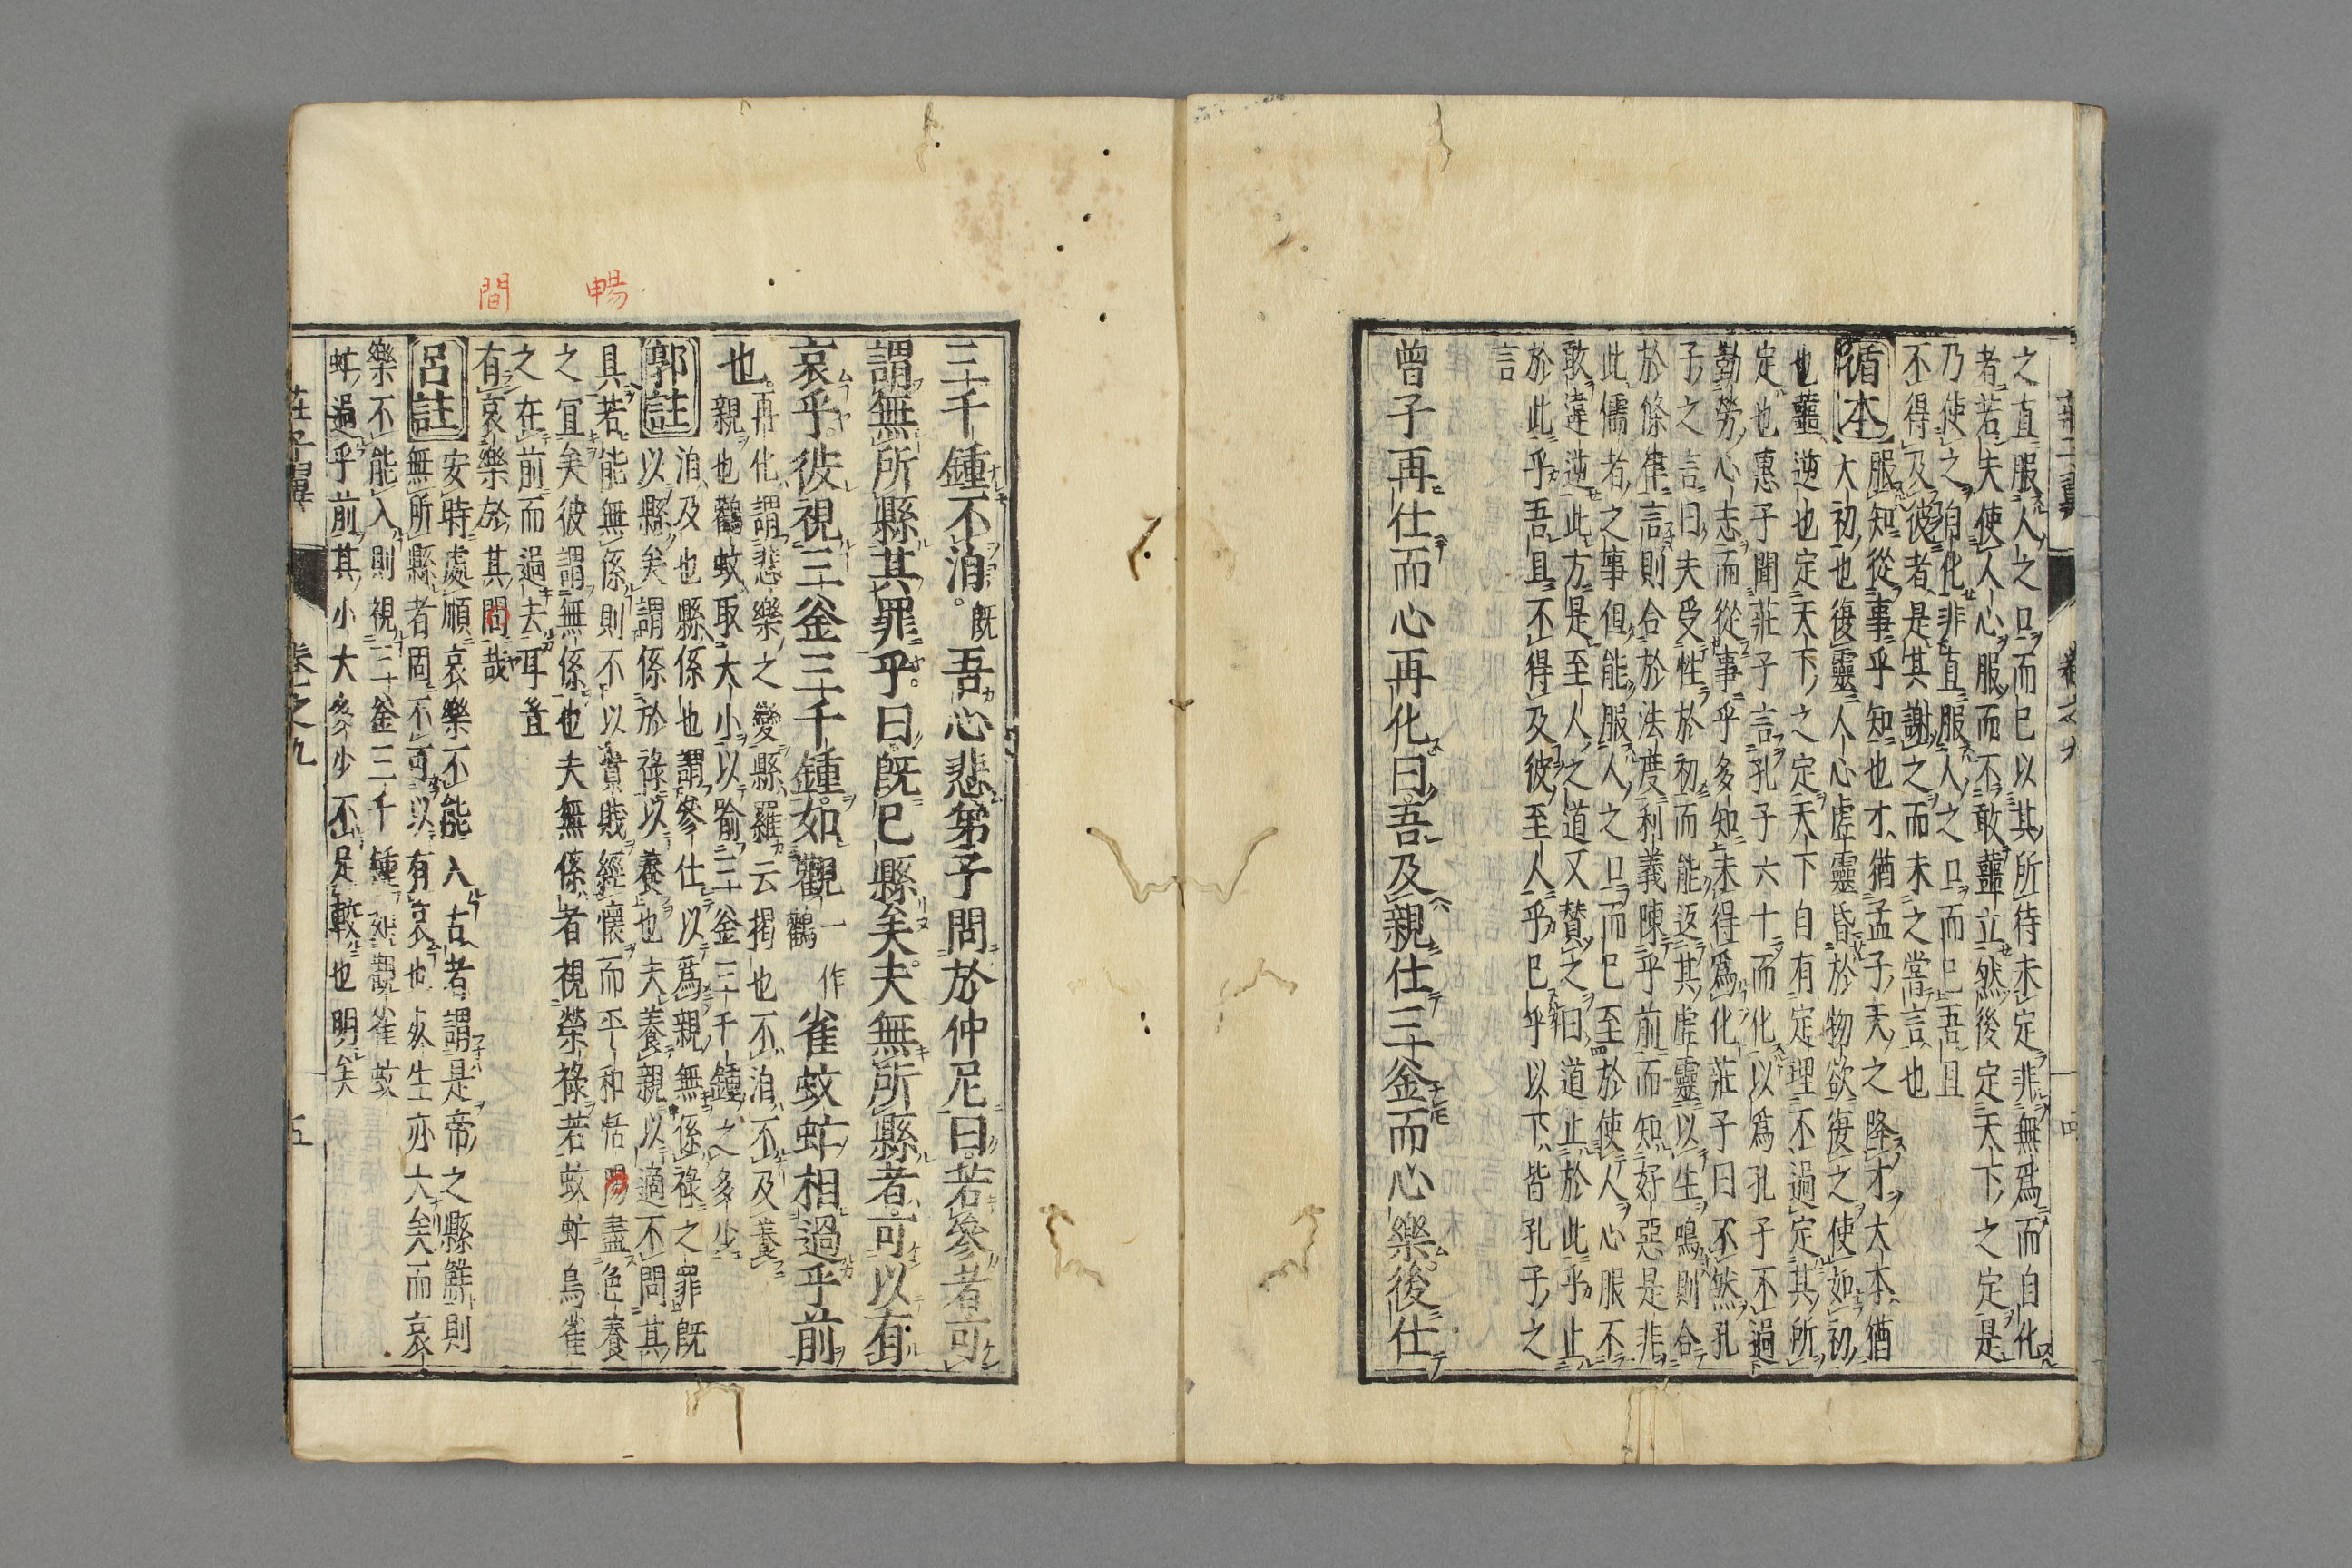 之直服人之口而已以其所待未定非無為而自化
者若夫使人心服而不敢蘁立然後定天下之定是
乃使之自化非直服人之口而已吾且
不得及彼者是其謝之而未之嘗言也
循本
服知從事乎知也才猶孟子天之降才大本猶
大初也復靈人心虛靈昏於物欲復之使如初
也蘁逆也定天下之定天下自有定理不過定其所
定也惠子聞莊子言孔子六十而化以為孔子不過
勤勞心志而從事乎多知未得為化莊子曰不然孔
子之言曰夫受性於初而能返其虛靈以生鳴則合
於條律言則合於法度利義陳乎前而知好惡是非
此儒者之事但能服人之口而已至於使人心服不
敢違逆此方是至人之道又贊之曰道止於此乎止
於此乎吾且不得及彼至人乎已乎以下皆孔子之
言
曾子再仕而心再化曰吾及親仕三釜而心樂後仕
三千鍾不洎既吾心悲弟子問於仲尼曰若參者可
謂無所縣其罪乎曰既已縣矣夫無所縣者可以有
哀乎彼視三釜三千鍾如觀一作鸛雀蚊虻相過乎前
也
再化謂悲樂之變縣羅云掲也不洎不及養
親也鸛蚊取大小以喻三釜三千鍾之多少
郭註
洎及也縣係也謂參仕以為親無係祿之罪既
以縣矣謂係於祿以養也夫養親以適不問其
具若能無係則不以貴賤經懷而平和恬盡色養
之宜矣彼謂無係也夫無係者視榮祿若蚊虻鳥雀
之在前而過去耳豈
有哀樂於其問哉
呂註
安時處順哀樂不能入古者謂是帝之縣觧則
無所縣者固不可以有哀也夾生亦大矣而哀
樂不能入則視三釜三千鍾如觀雀蚊
虻過乎前其小大多少不足較也明矣
暢
間
莊子翼
卷之九
五